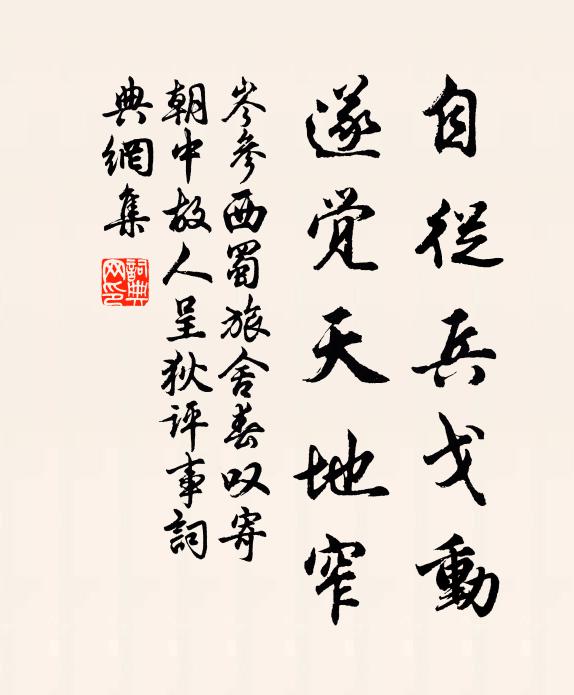 自從兵戈動
遂覚天地窄
岑參西蜀旅舍春叹寄
朝中故人呈狄评事詞
典網集
詞典
网印